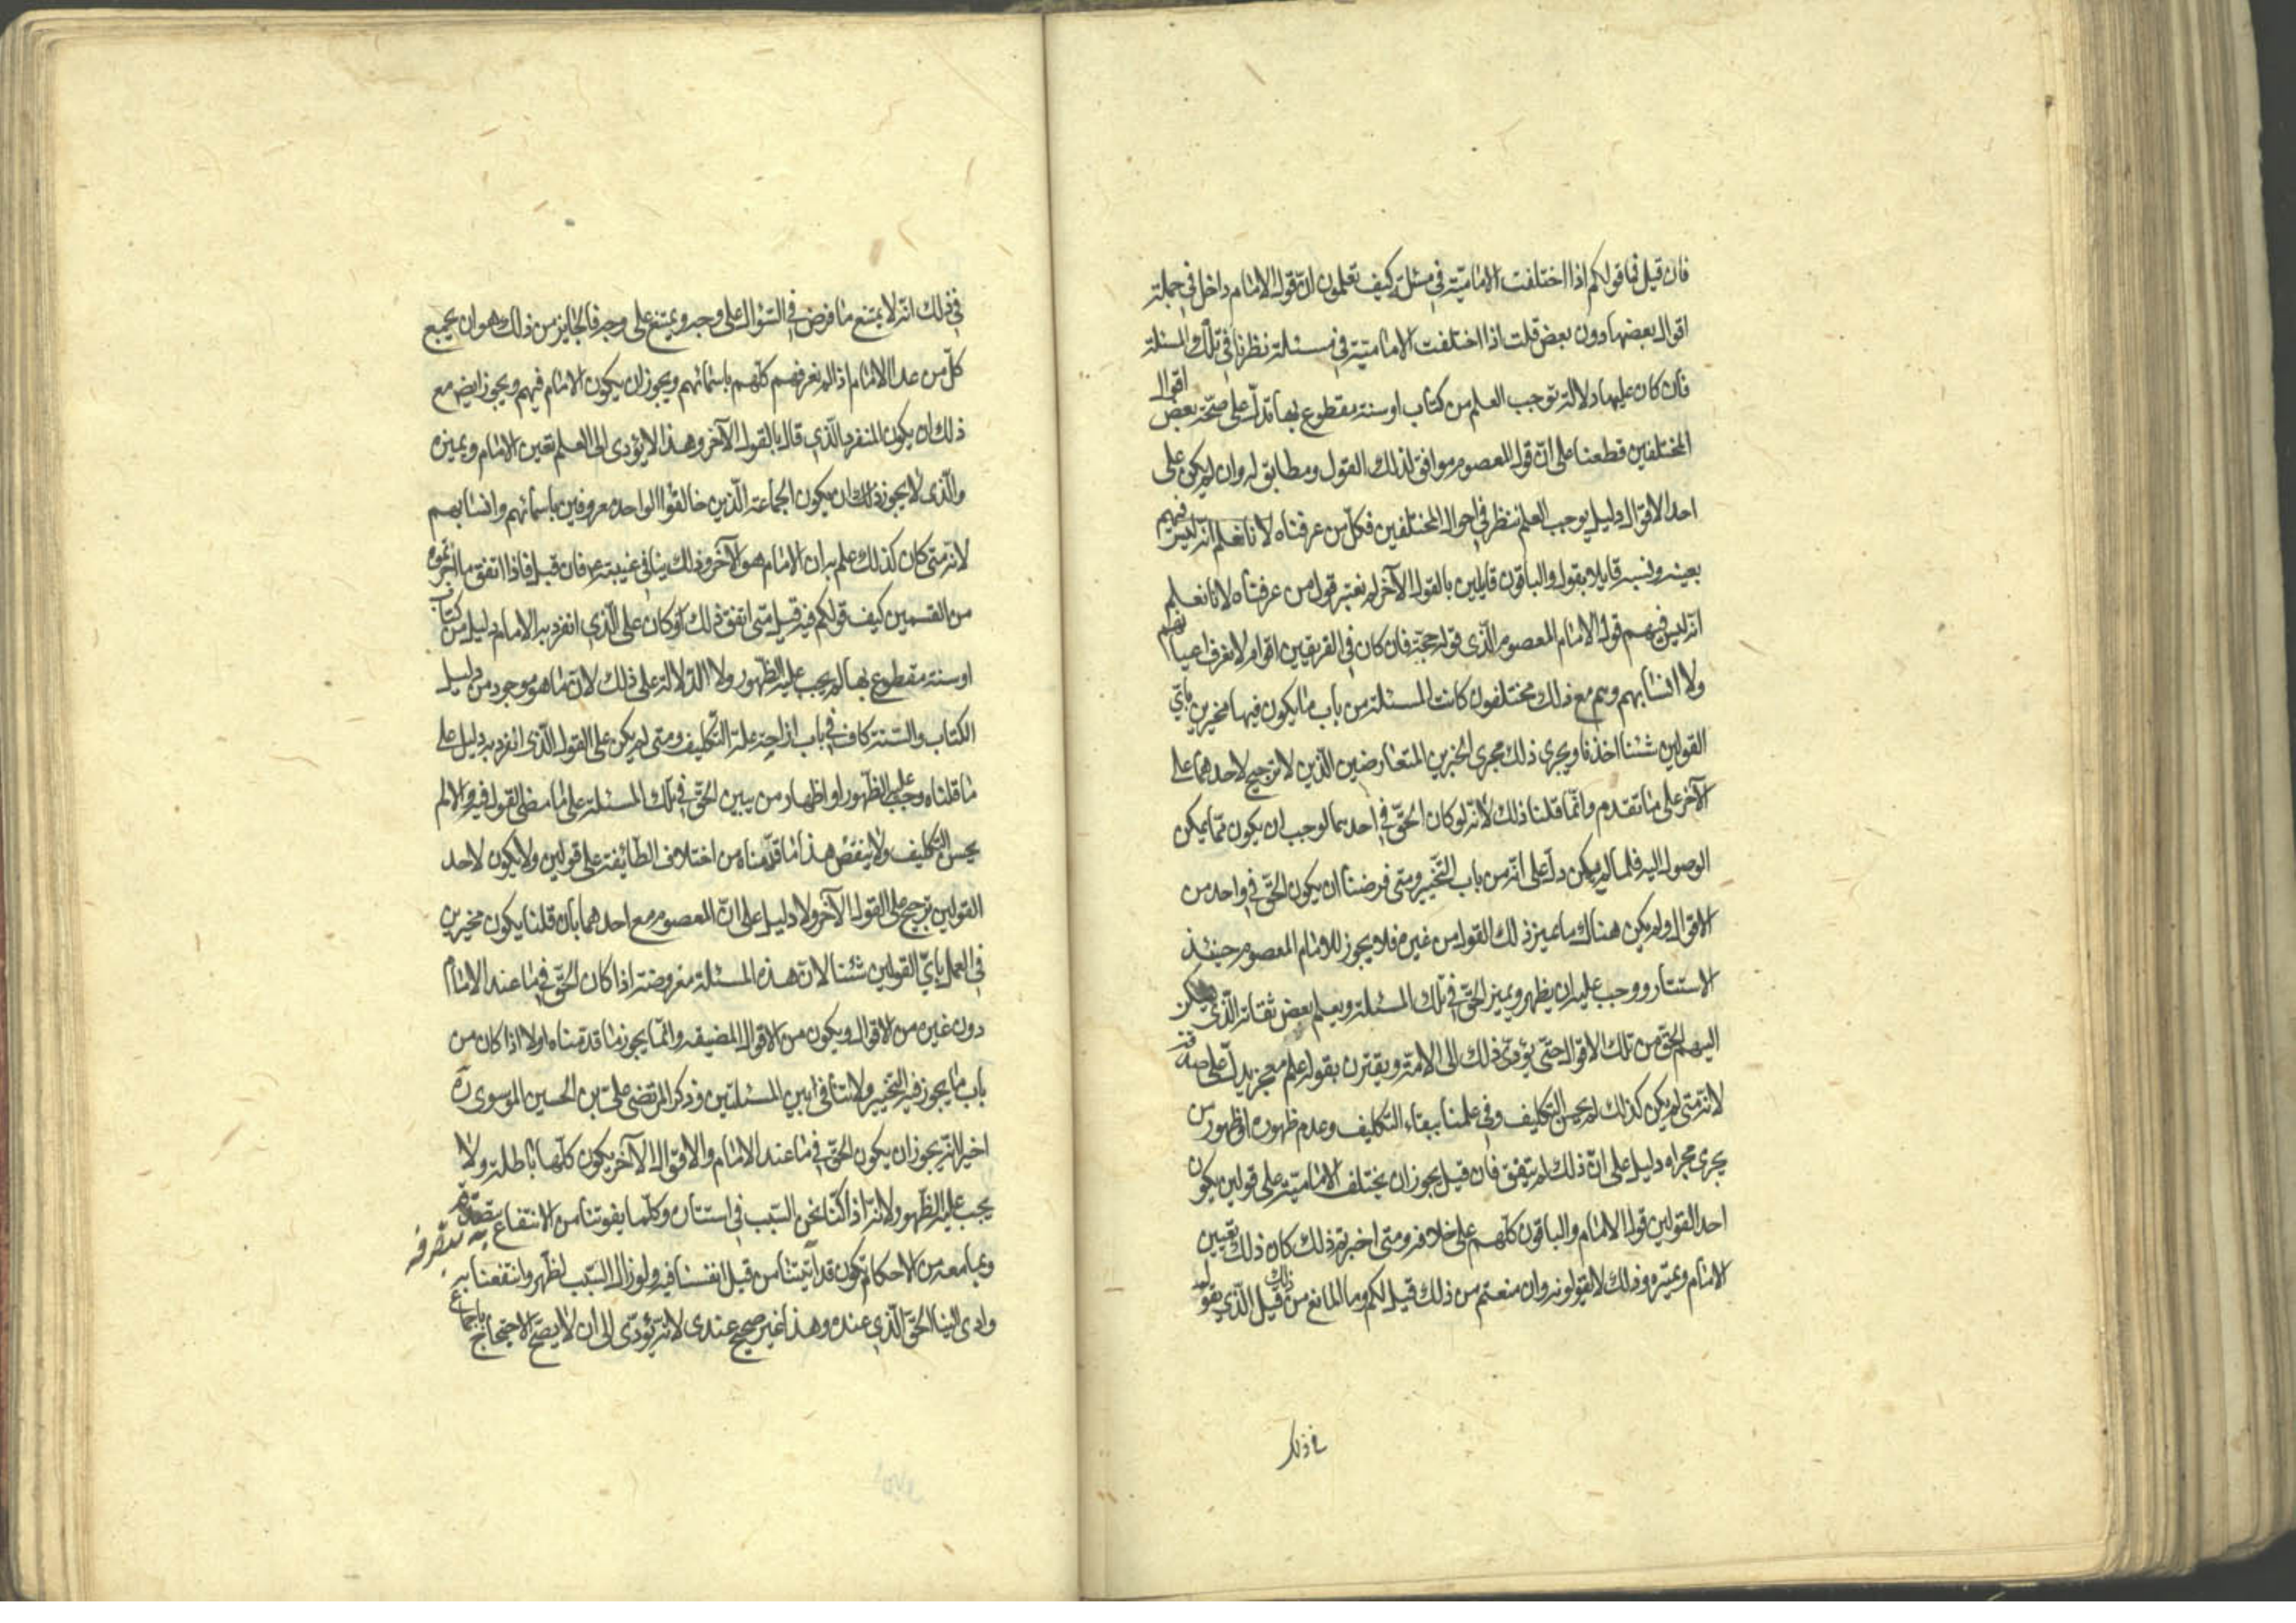 فان قيل فما قولكم اذا اختلفت الامامية في مسئلة كيف تعلمون ان قول الامام داخل في جملة
اقوال بعضها دون بعض قلت اذا اختلفت الامامية في مسئلة نظرنا في تلك المسئلة
فان كان عليها دلالة توجب العلم من كتاب او سنة مقطوع بها تدل على صحة بعض اقوال
المختلفين قطعنا على ان قول المعصوم موافق لذلك القول ومطابق له وان لم يكن على
احد الاقوال دليل يوجب العلم ننظر في احوال المختلفين فكل من عرفناه لانا نعلم انه ليس فيهم
بعينه ونسبه قايلا بقول والباقون قايلين بالقول الآخر لم نعتبر قول من عرفناه لانا نعلم
انه ليس فيهم قول الامام المعصوم الذي قوله حجة فان كان في الفريقين اقوام لا نعرف اعيانهم
ولا انسابهم وهم مع ذلك مختلفون كانت المسئلة من باب ما يكون فيها مخيرين بأي
القولين شئنا اخذنا ويجري ذلك مجرى الخبرين المتعارضين الذين لا ترجيح لاحدهما على
الآخر على ما تقدم وانما قلنا ذلك لأنه لو كان الحق في احدهما لوجب ان يكون مما يمكن
الوصول اليه فلما لم يمكن دل على انه من باب التخيير ومتى فرضنا ان يكون الحق في واحد من
الاقوال ولم يكن هناك ما يميز ذلك القول من غيره فلا يجوز للامام المعصوم حينئذ
الاستتار ووجب عليه ان يظهر ويميز الحق في تلك المسئلة ويعلم بعض ثقاته الذي يسكن
اليهم الحق من تلك الاقوال حتى يؤدي ذلك الى الامة ويقترن بقوله علم معجز يدل على صدقه
لانه متى لم يكن كذلك لم يحسن التكليف وفي علمنا ببقاء التكليف وعدم ظهوره او ظهور من
يجري مجراه دليل على ان ذلك لم يتفق فان قيل يجوز ان يختلف الامامية على قولين يكون
احد القولين قول الامام والباقون كلهم على خلافه ومتى اخبرتم ذلك كان ذلك تعيين
الامام وتميزه وذلك لا تقولونه وان منعتم من ذلك قيل لكم وما المانع من ذلك قيل الذي نقوله
في ذلك
في ذلك انه لا يمتنع ما فرض في السؤال على وجه ويمتنع على وجه فالجايز من ذلك هو ان يجمع
كل من عدا الامام اذا لم نعرفهم كلهم باسمائهم ويجوز ان يكون الامام فيهم ويجوز ايض مع
ذلك ان يكون المنفرد الذي قال بالقول الآخر وهذا لا يؤدي الى العلم بتعين الامام وتميزه
والذي لا يجوز ذلك ان يكون الجماعة الذين خالفوا الواحد معروفين باسمائهم وانسابهم
لانه متى كان كذلك علم به ان الامام هو الآخر وذلك ينافي غيبته فان قيل فاذا اتفق ما اجزتموه
من القسمين كيف قولكم فيه قيل متى اتفق ذلك وكان على الذي انفرد به الامام دليل من كتاب
او سنة مقطوع بها لم يجب عليه الظهور ولا الدلالة على ذلك لان ما هو موجود من دليل
الكتاب والسنة كاف في باب ازاحة علة التكليف ومتى لم يكن على القول الذي انفرد به دليل على
ما قلناه وجب عليه الظهور او اظهار من يبين الحق في تلك المسئلة على ما مضى القول فيه والا لم
يحسن التكليف ولا ينقض هذا ما قدمناه من اختلاف الطائفة على قولين ولا يكون لاحد
القولين ترجيح على القول الآخر ولا دليل على ان المعصوم مع احدهما بان قلنا يكون مخيرين
في العمل باي القولين شئنا لان هذه المسئلة مفروضة اذا كان الحق فيما عند الامام
دون غيره من الاقوال ويكون من الاقوال المضيقه وانما يجوز ما قدمناه اولا اذا كان من
باب ما يجوز فيه التخيير ولا تنافي بين المسئلتين وذكر المرتضى علي بن الحسين الموسوي ره
اخيرا انه يجوز ان يكون الحق فيما عند الامام والاقوال الآخر يكون كلها باطلة ولا
يجب عليه الظهور لانه اذا كنا نحن السبب في استتاره وكلما يفوتنا من الانتفاع به وبتصرفه
وبما معه من الاحكام يكون قد أتينا من قبل انفسنا فيه ولو زال السبب لظهر وانتفعنا به
وادى الينا الحق الذي عنده وهذا غير صحيح عندي لانه يؤدي الى ان لا يصح الاحتجاج باجماع